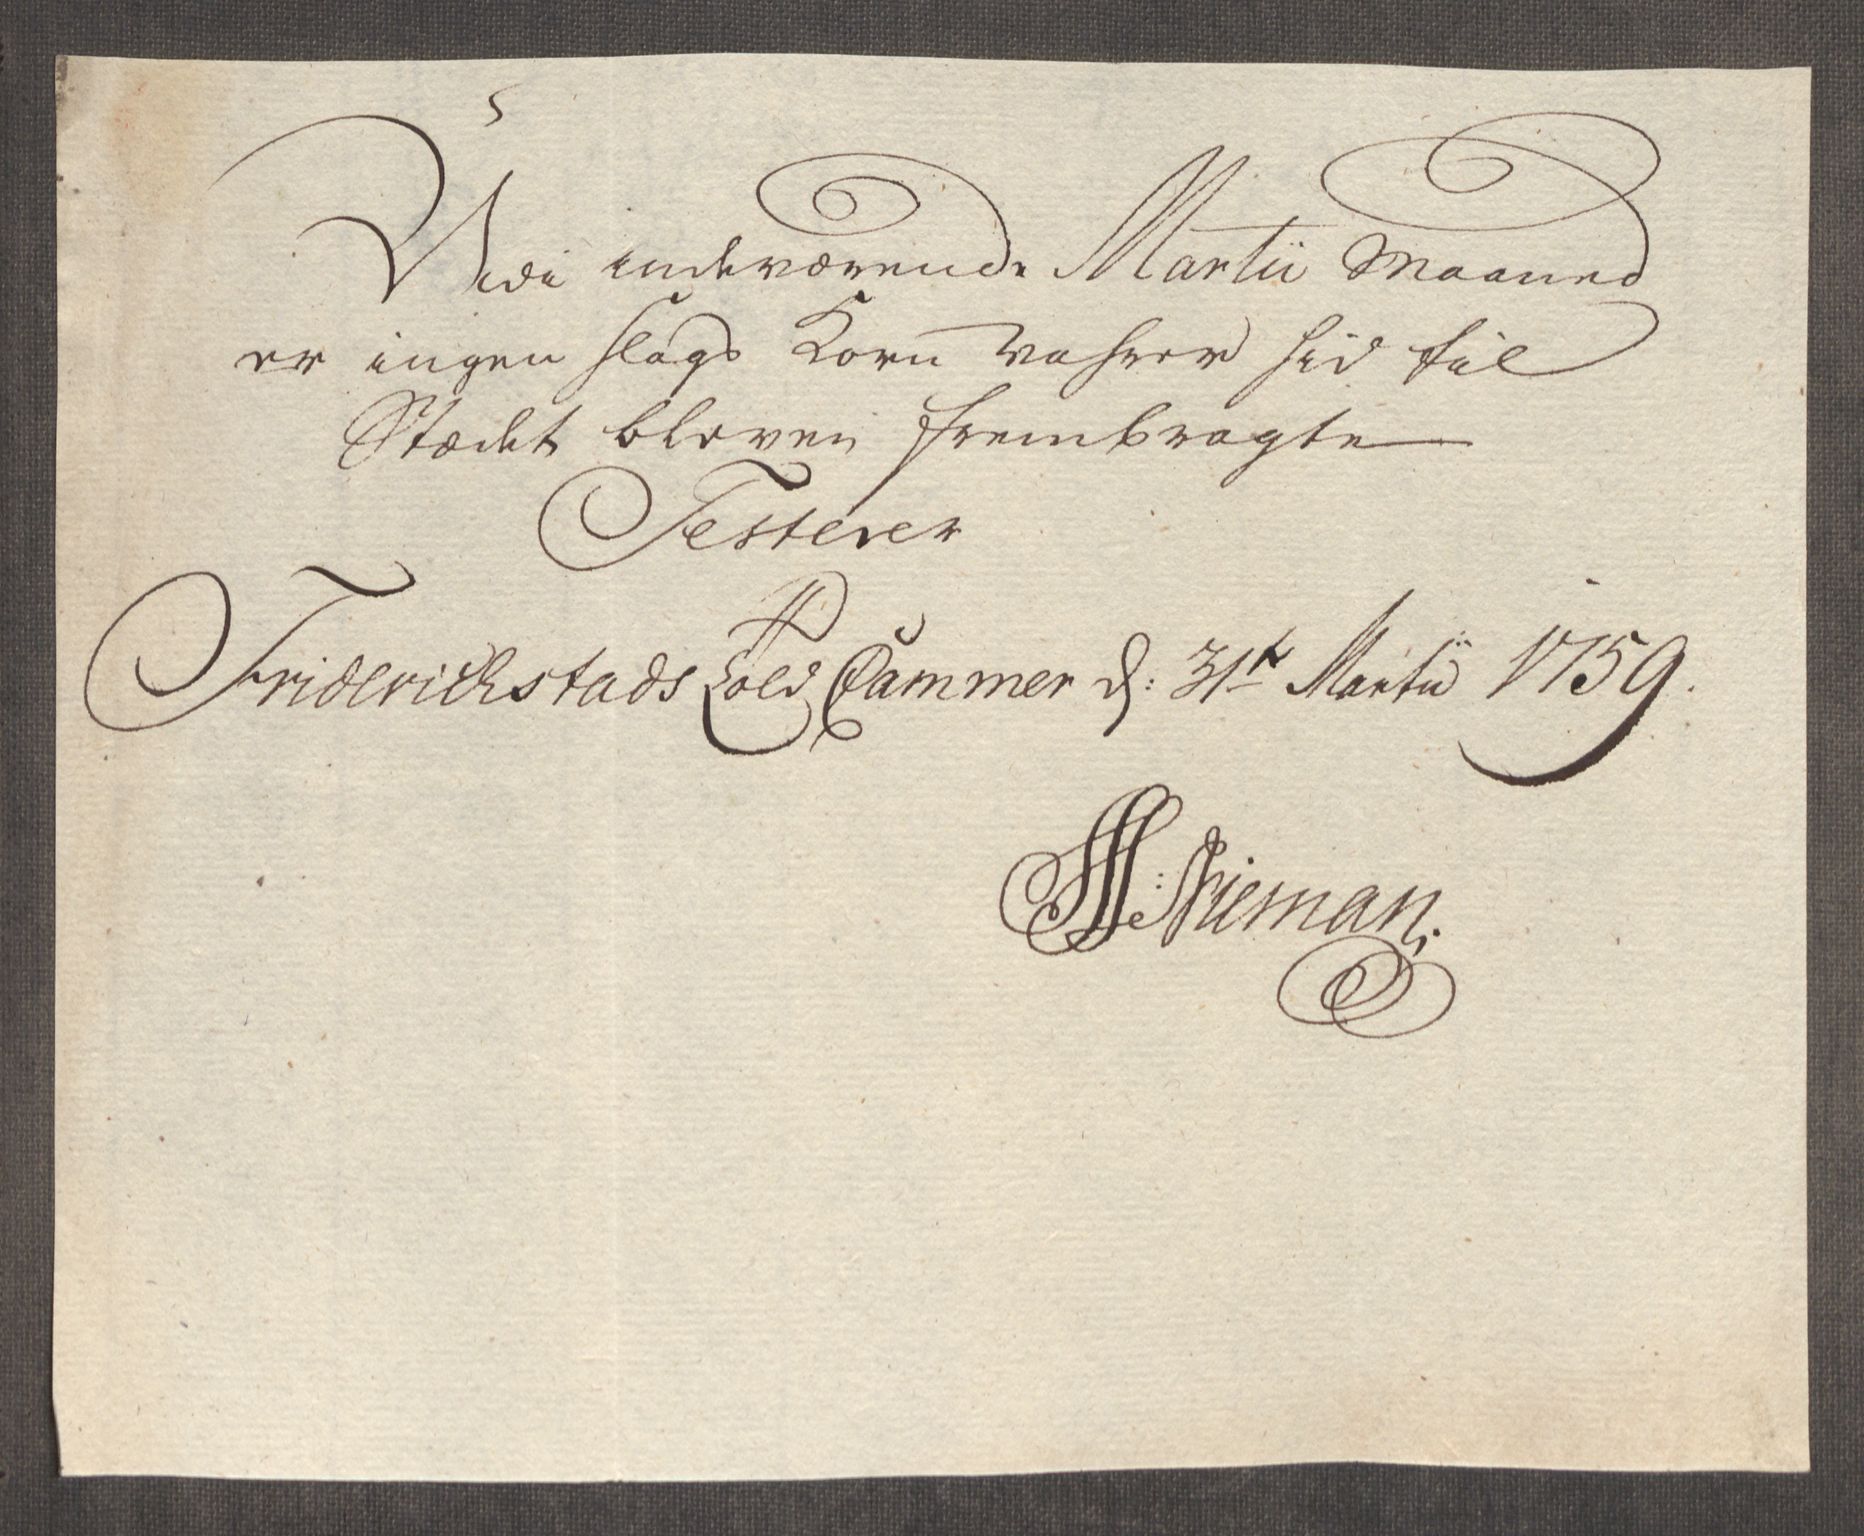 Udi indeværende Martii Maaned
er ingen slags Korn Wahrer hid til
Stædet bleven frembragte
Testerer
Friderichstads Told Cammer d: 31te Martii 1759.
Nieman.